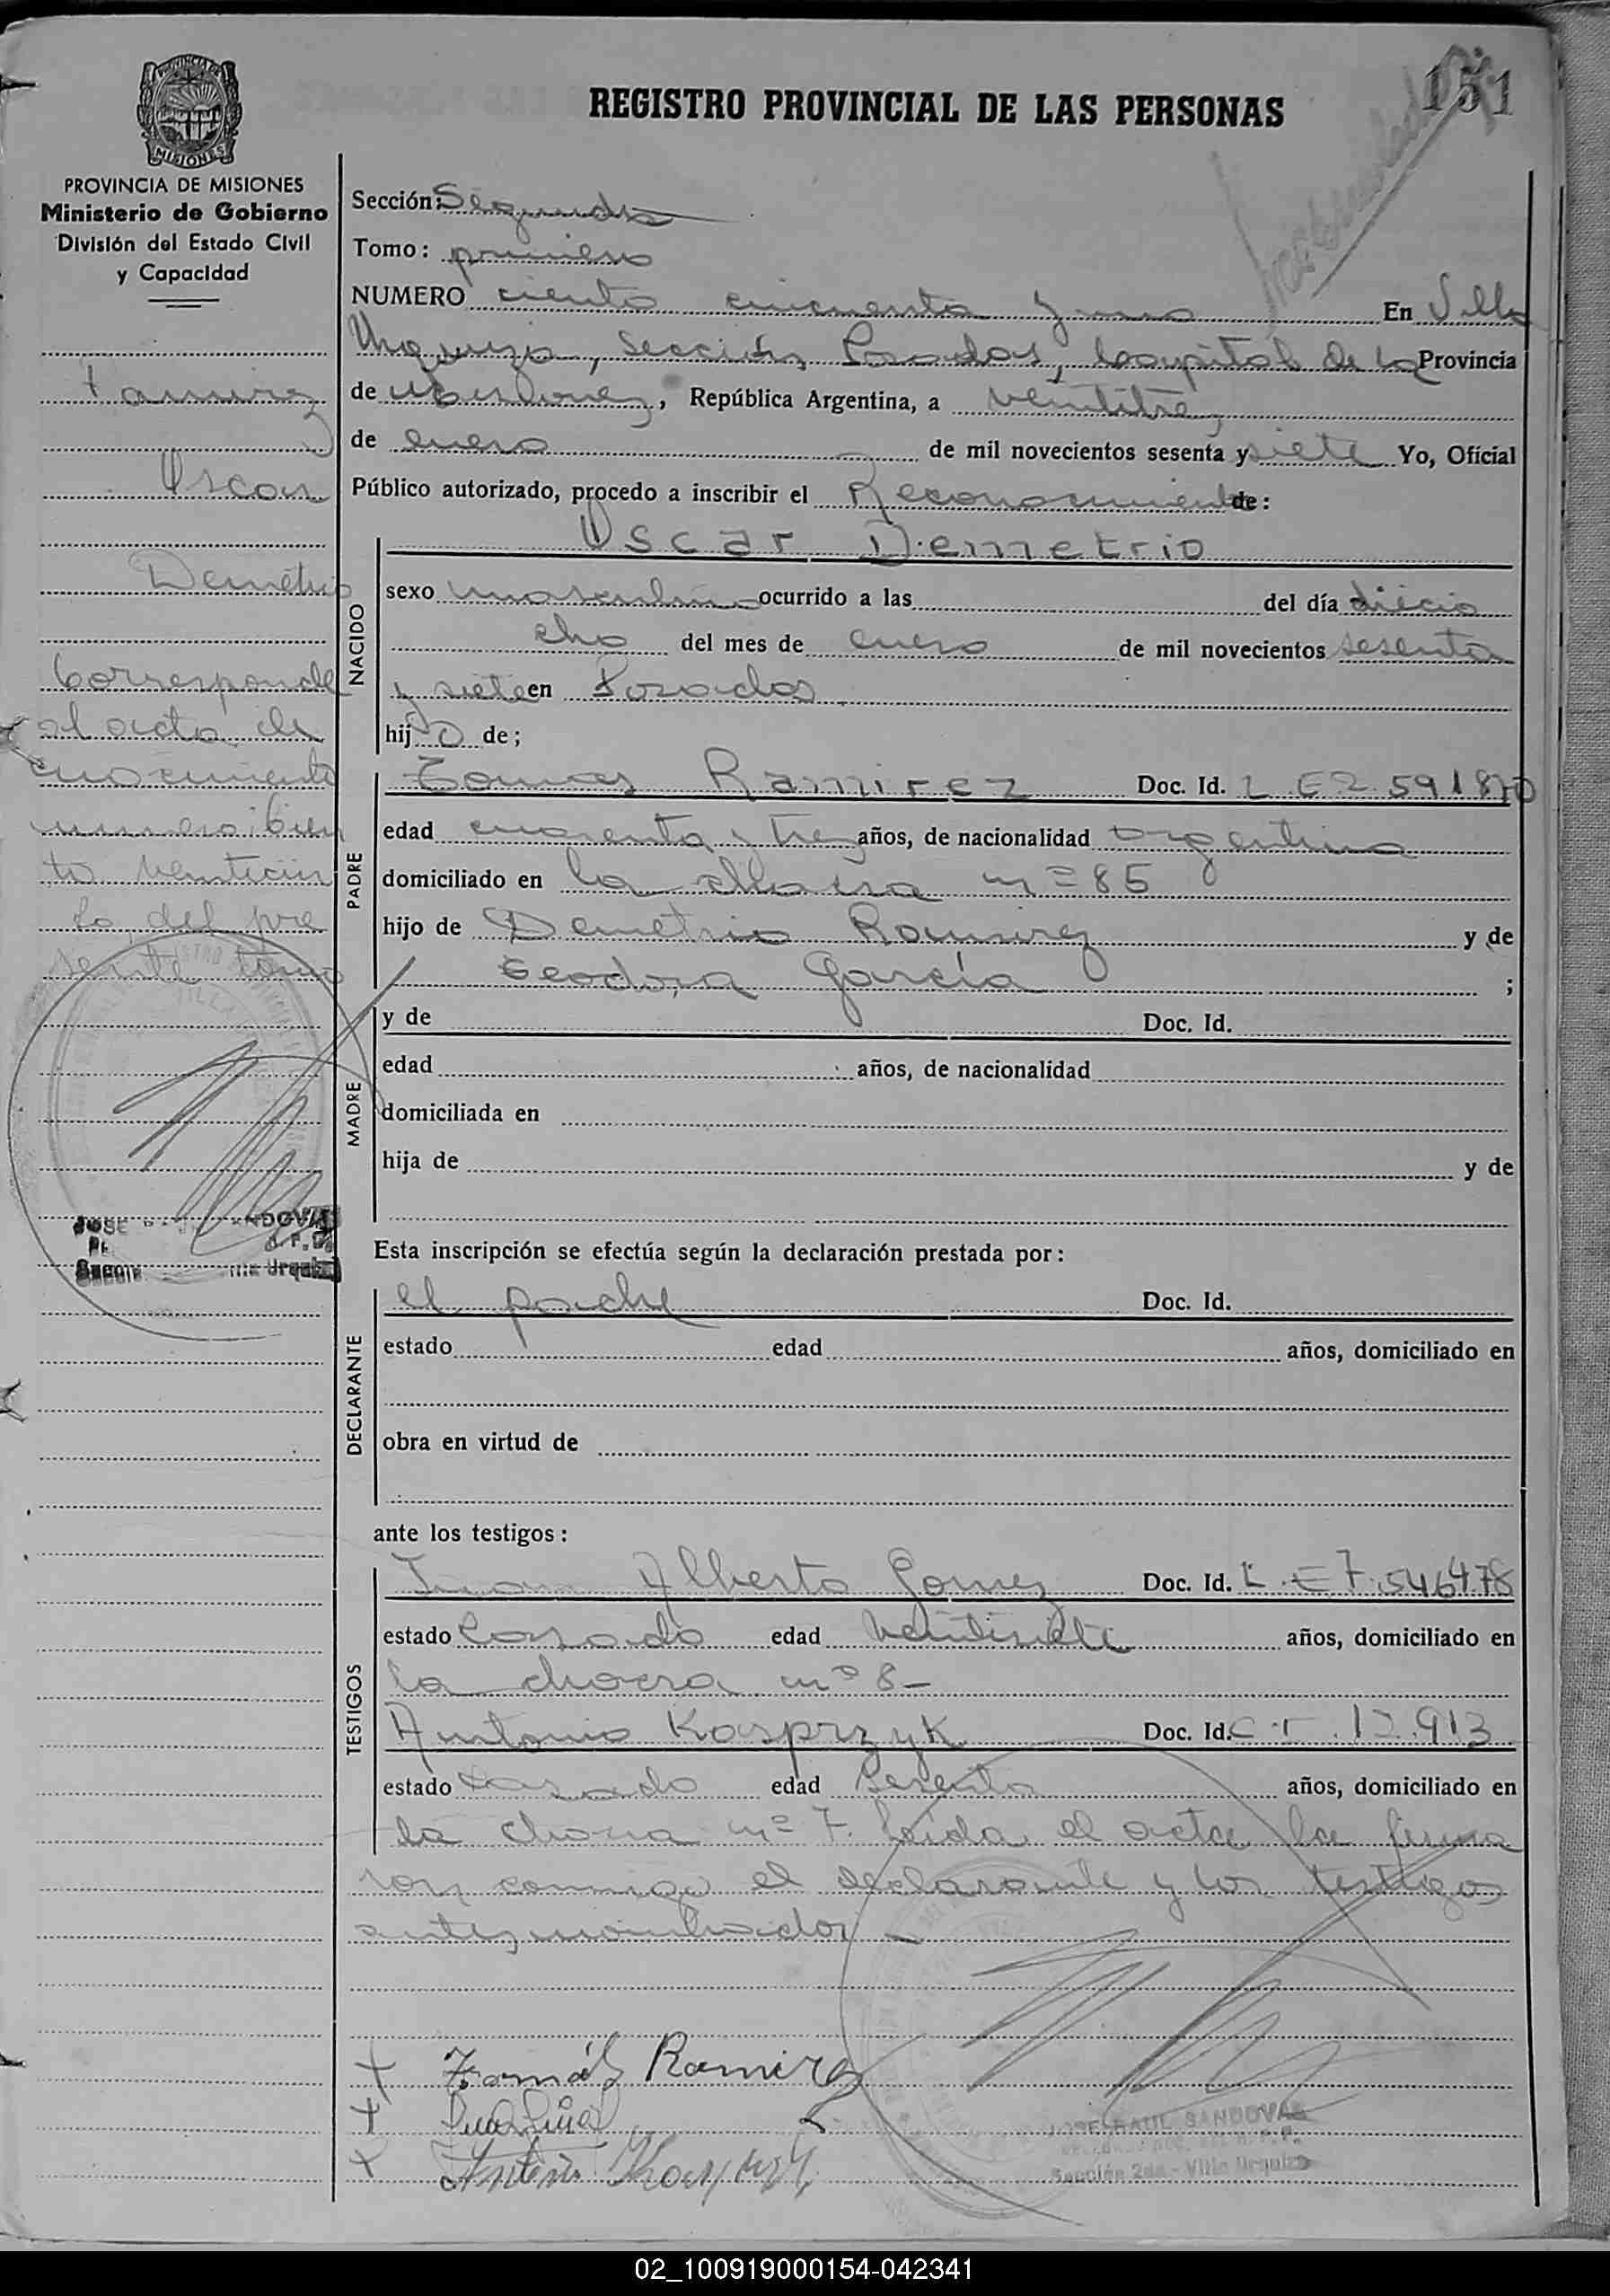 151
REGISTRO PROVINCIAL DE LAS PERSONAS
PROVINCIA DE MISIONES
Ministerio de Gobierno
División del Estado Civil
y Capacidad
Ramirez
Oscar
Demetrio
Corresponde
al acta de
numero: Cien
to
lo del pre
sente tomo
JOSE
Urquiza
Sección: Segunda
Tomo: primero
NUMERO ciento cincuenta y uno En Villa
Urquiza, sección Posadas, de la Provincia
de Misiones, República Argentina, a veintitres
de enero de mil novecientos sesenta y siete Yo, Oficial
Público autorizado, procedo a inscribir el Reconocimiento de:
NACIDO
Oscar Demetrio
sexo masculino ocurrido a las del día diecio
cho del mes de enero de mil novecientos sesenta
y siete en Posadas
hijo de;
PADRE
Tomas Ramirez Doc. Id. L E 2.591870
edad cuarenta y tres años, de nacionalidad argentina
domiciliado en la chacra nº 85
hijo de Demetrio Ramirez y de
Teodora García ;
MADRE
y de Doc. Id.
edad años, de nacionalidad
domiciliada en
hija de y de
Esta inscripción se efectúa según la declaración prestada por:
DECLARANTE
el padre Doc. Id.
estado edad años, domiciliado en
obra en virtud de
ante los testigos:
TESTIGOS
Juan Alberto Gomez Doc. Id. L.E 7.546478
estado Casado edad veintisiete años, domiciliado en
la chacra nº 8-
Antonio Kasprzyk Doc. Id. C.I. 12.913
estado casado edad sesenta años, domiciliado en
la chacra nº 7. Leida el acta la firma
ron conmigo el declarante y los testigos
antes nombrados
+ Tomás Ramirez
+
+ Antonio
JOSE RAUL SANDOVAL
Sección 2da - Villa Urquiza
02_100919000154-042341